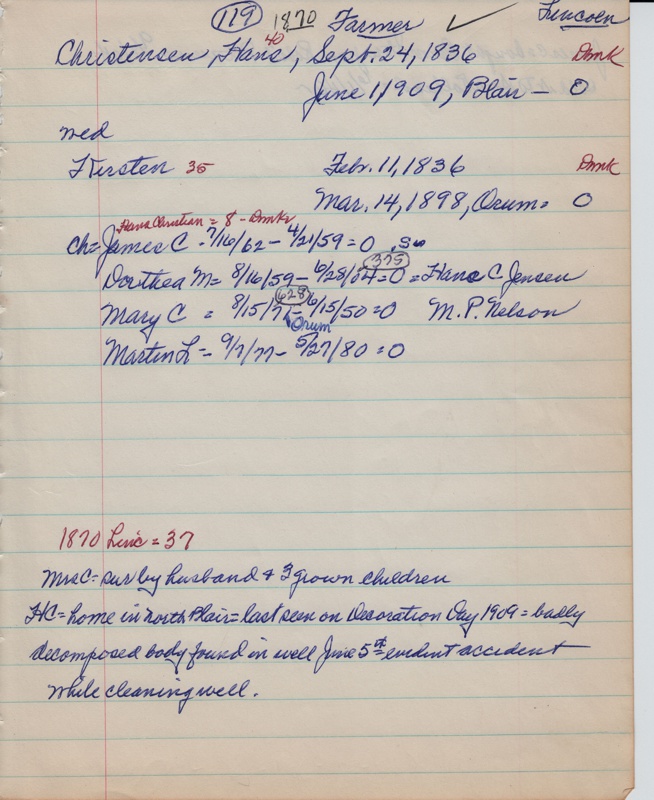 119 1870 Farmer ✓ Lincoln
Christensen, Hans, Sept. 24, 1836 Dmk
40
June 1, 1909, Blair - O
wed
Kirsten 35 Feb. 11, 1836 Dmk
Mar. 14, 1898, Orum = O
Hans Christian = 8 - Dmk
ch = James C - 7/16/62 - 4/21/59 = O
375
Dorthea M = 8/16/59 - 6/28/04 = O = Hans C Jensen
628
Mary C = 8/15/71 - 6/15/50 = O M. P. Nelson
Orum
Martin L - 9/7/77 - 5/27/80 = O
1870 Linc = 37
Mrs C = sur by husband & 3 grown children
HC = home in north Blair = last seen on Decoration Day 1909 = badly
decomposed body found in well June 5th = evident accident
while cleaning well.